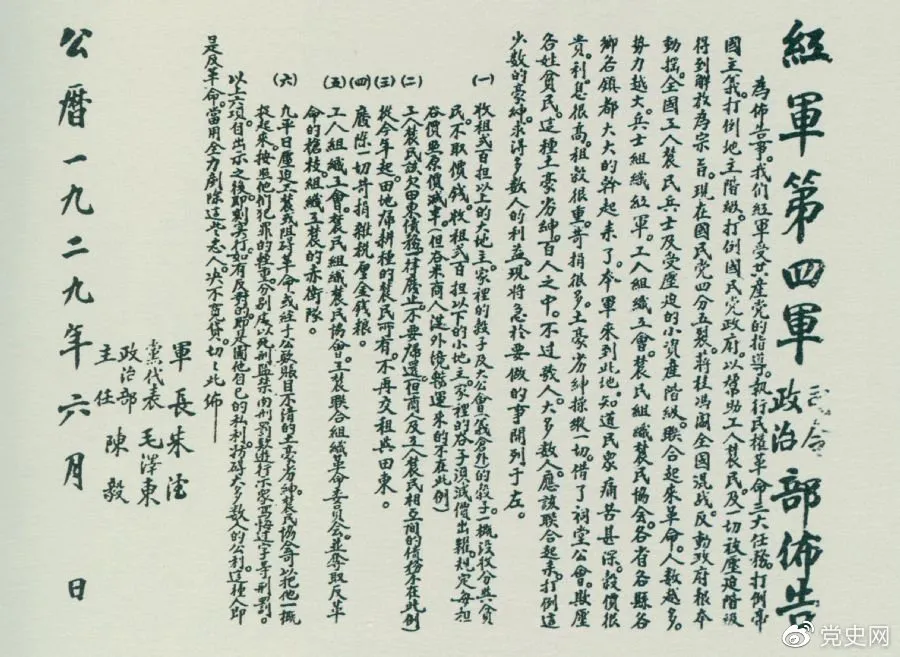 紅軍第四軍司令政治部佈告
為佈告事。我们紅軍受共產党的指導。執行民權革命三大任務。打倒帝
國主義。打倒地主階級。打倒國民党政府。以幫助工人農民。及一切被壓迫階級
得到解放為宗旨。現在國民党四分五裂。蔣桂馮閻全國混战。反動政府根本
動摇。全國工人農民兵士及受壓迫的小資產階級。聯合起來革命。人数越多。
勢力越大。兵士組織紅軍。工人組織工會。農民組織農民協会。各省各縣各
鄉各鎮都大大的幹起來了。本軍來到此地。知道民衆痛苦甚深。穀價很
貴。利息很高。租穀很重。苛捐很多。土豪劣紳操縱一切。借了祠堂公會。欺壓
各姓貧民。這種土豪劣紳。百人之中。不过数人。大多数人。應該联合起來。打倒這
少数的豪紳。求得多数人的利益。現将急於要做的事開列于左。
(一) 收租弍百担以上的大地主。家裡的穀子及大公會(義倉外)的穀子。一概没收分與貧
民。不取價钱。收租弍百担以下的小地主。家裡的谷子。须減價出糶。規定每担
谷價照原價減半。(但谷米商人從外境轉運來的不在此例)
(二) 工人農民該欠田東債務。一律廢止。不要歸還。(但商人及工人農民相互間的債務不在此例)
(三) 從今年起。田地歸耕種的農民所有。不再交租與田東。
(四) 廢除一切苛捐雜税厘金錢粮。
(五) 工人組織工會。農民組織農民協會。工農聯合組織革命委員会。並奪取反革
命的槍枝組織工農的赤衛隊。
(六) 凡平日壓迫工農或阻碍革命。或经手公款賬目不清的土豪劣紳。農民協會可以把他一概
捉起來。按照他们犯罪的輕重。分别處以死刑監禁肉刑罰款遊行示衆寫悔过字等刑罰。
以上六項。自出示之後。即刻实行。如有反對的。即是圖他自己的私利。妨碍大多数人的公利。這種人即
是反革命。當用全力剷除這些惡人。决不寬貸。切切此佈——
軍長 朱德
黨代表 毛澤東
政治部主任 陳毅
公曆一九二九年六月 日
党史网